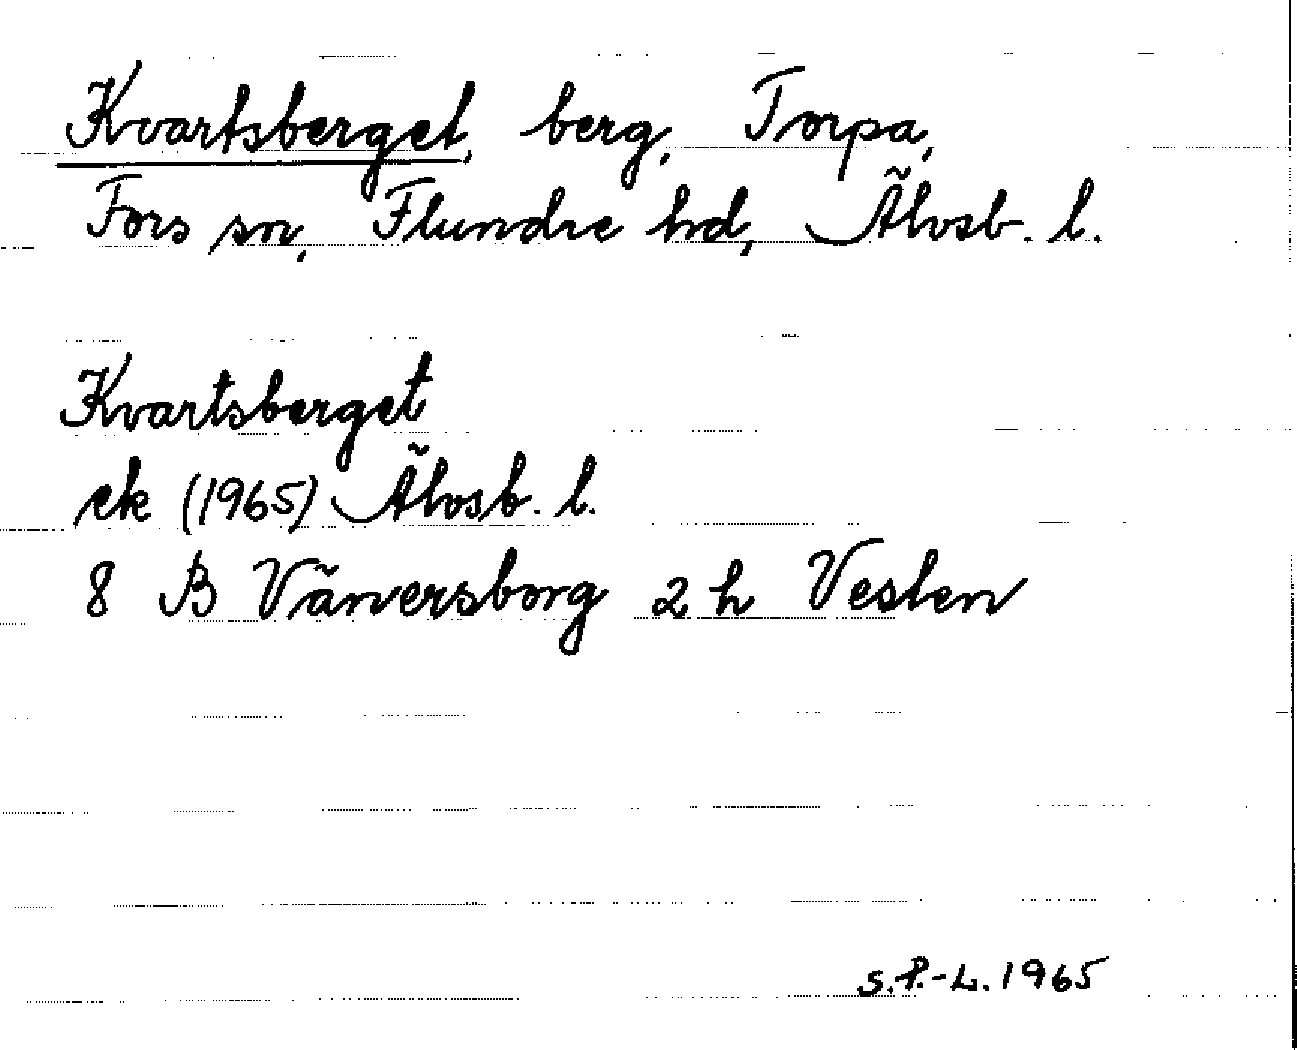 Kvartsberget, berg, Torpa,
Fors sn, Flundre hd, Älvsb. l.
Kvartsberget
ek (1965) Älvsb. l.
8 B Vänersborg 2 h Vesten
S.P.-L. 1965